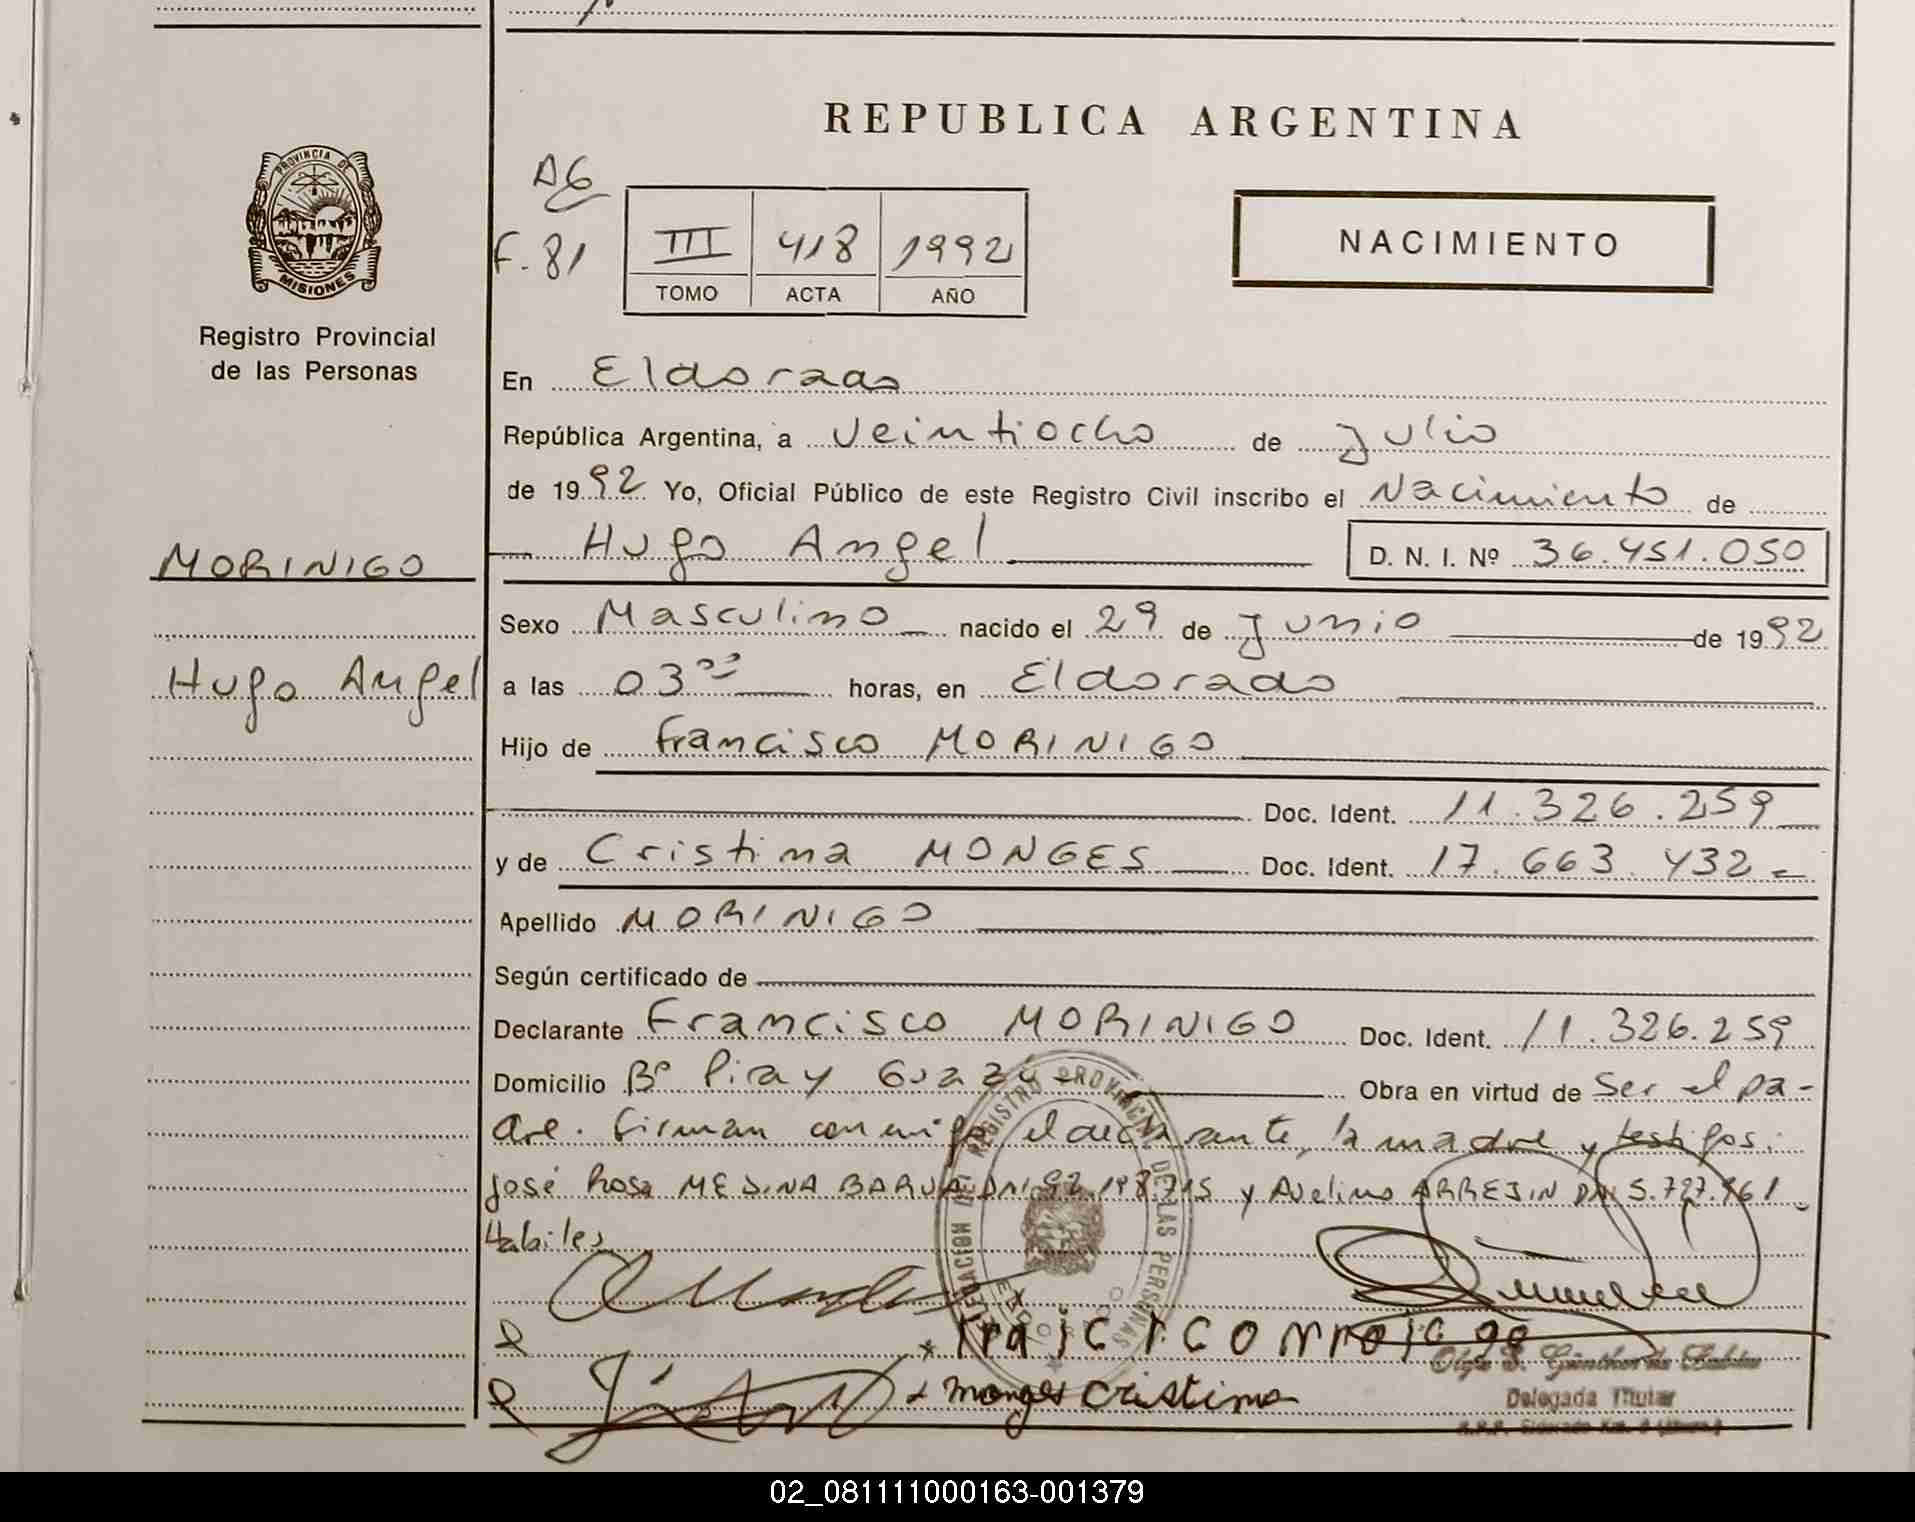 REPUBLICA ARGENTINA
PROVINCIA DE
MISIONES
Registro Provincial
de las Personas
A6
F. 81
III 418 1992
TOMO ACTA AÑO
NACIMIENTO
En Eldorado
República Argentina, a veintiocho de Julio
de 1992 Yo, Oficial Público de este Registro Civil inscribo el Nacimiento de
MORINIGO
Hugo Angel D. N. I. Nº 36.451.050
Sexo Masculino nacido el 29 de Junio de 1992
Hugo Angel
a las 03 horas, en Eldorado
Hijo de Francisco MORINIGO
Doc. Ident. 11.326.259
y de Cristina MONGES Doc. Ident. 17.663.432
Apellido MORINIGO
Según certificado de
Declarante Francisco MORINIGO Doc. Ident. 11.326.259
Domicilio Bº Piray Guazú Obra en virtud de ser el pa-
dre. Firman conmigo el declarante, la madre y testigos:
José Rosa MEDINA BARUA DNI 92.198.715 y Avelino ARREJIN DNI 5.727.961
Habiles
REGISTRO PROVINCIAL DE LAS PERSONAS
DELEGACION
ELDORADO
Monges Cristina
Delegada Titular
02_081111000163-001379